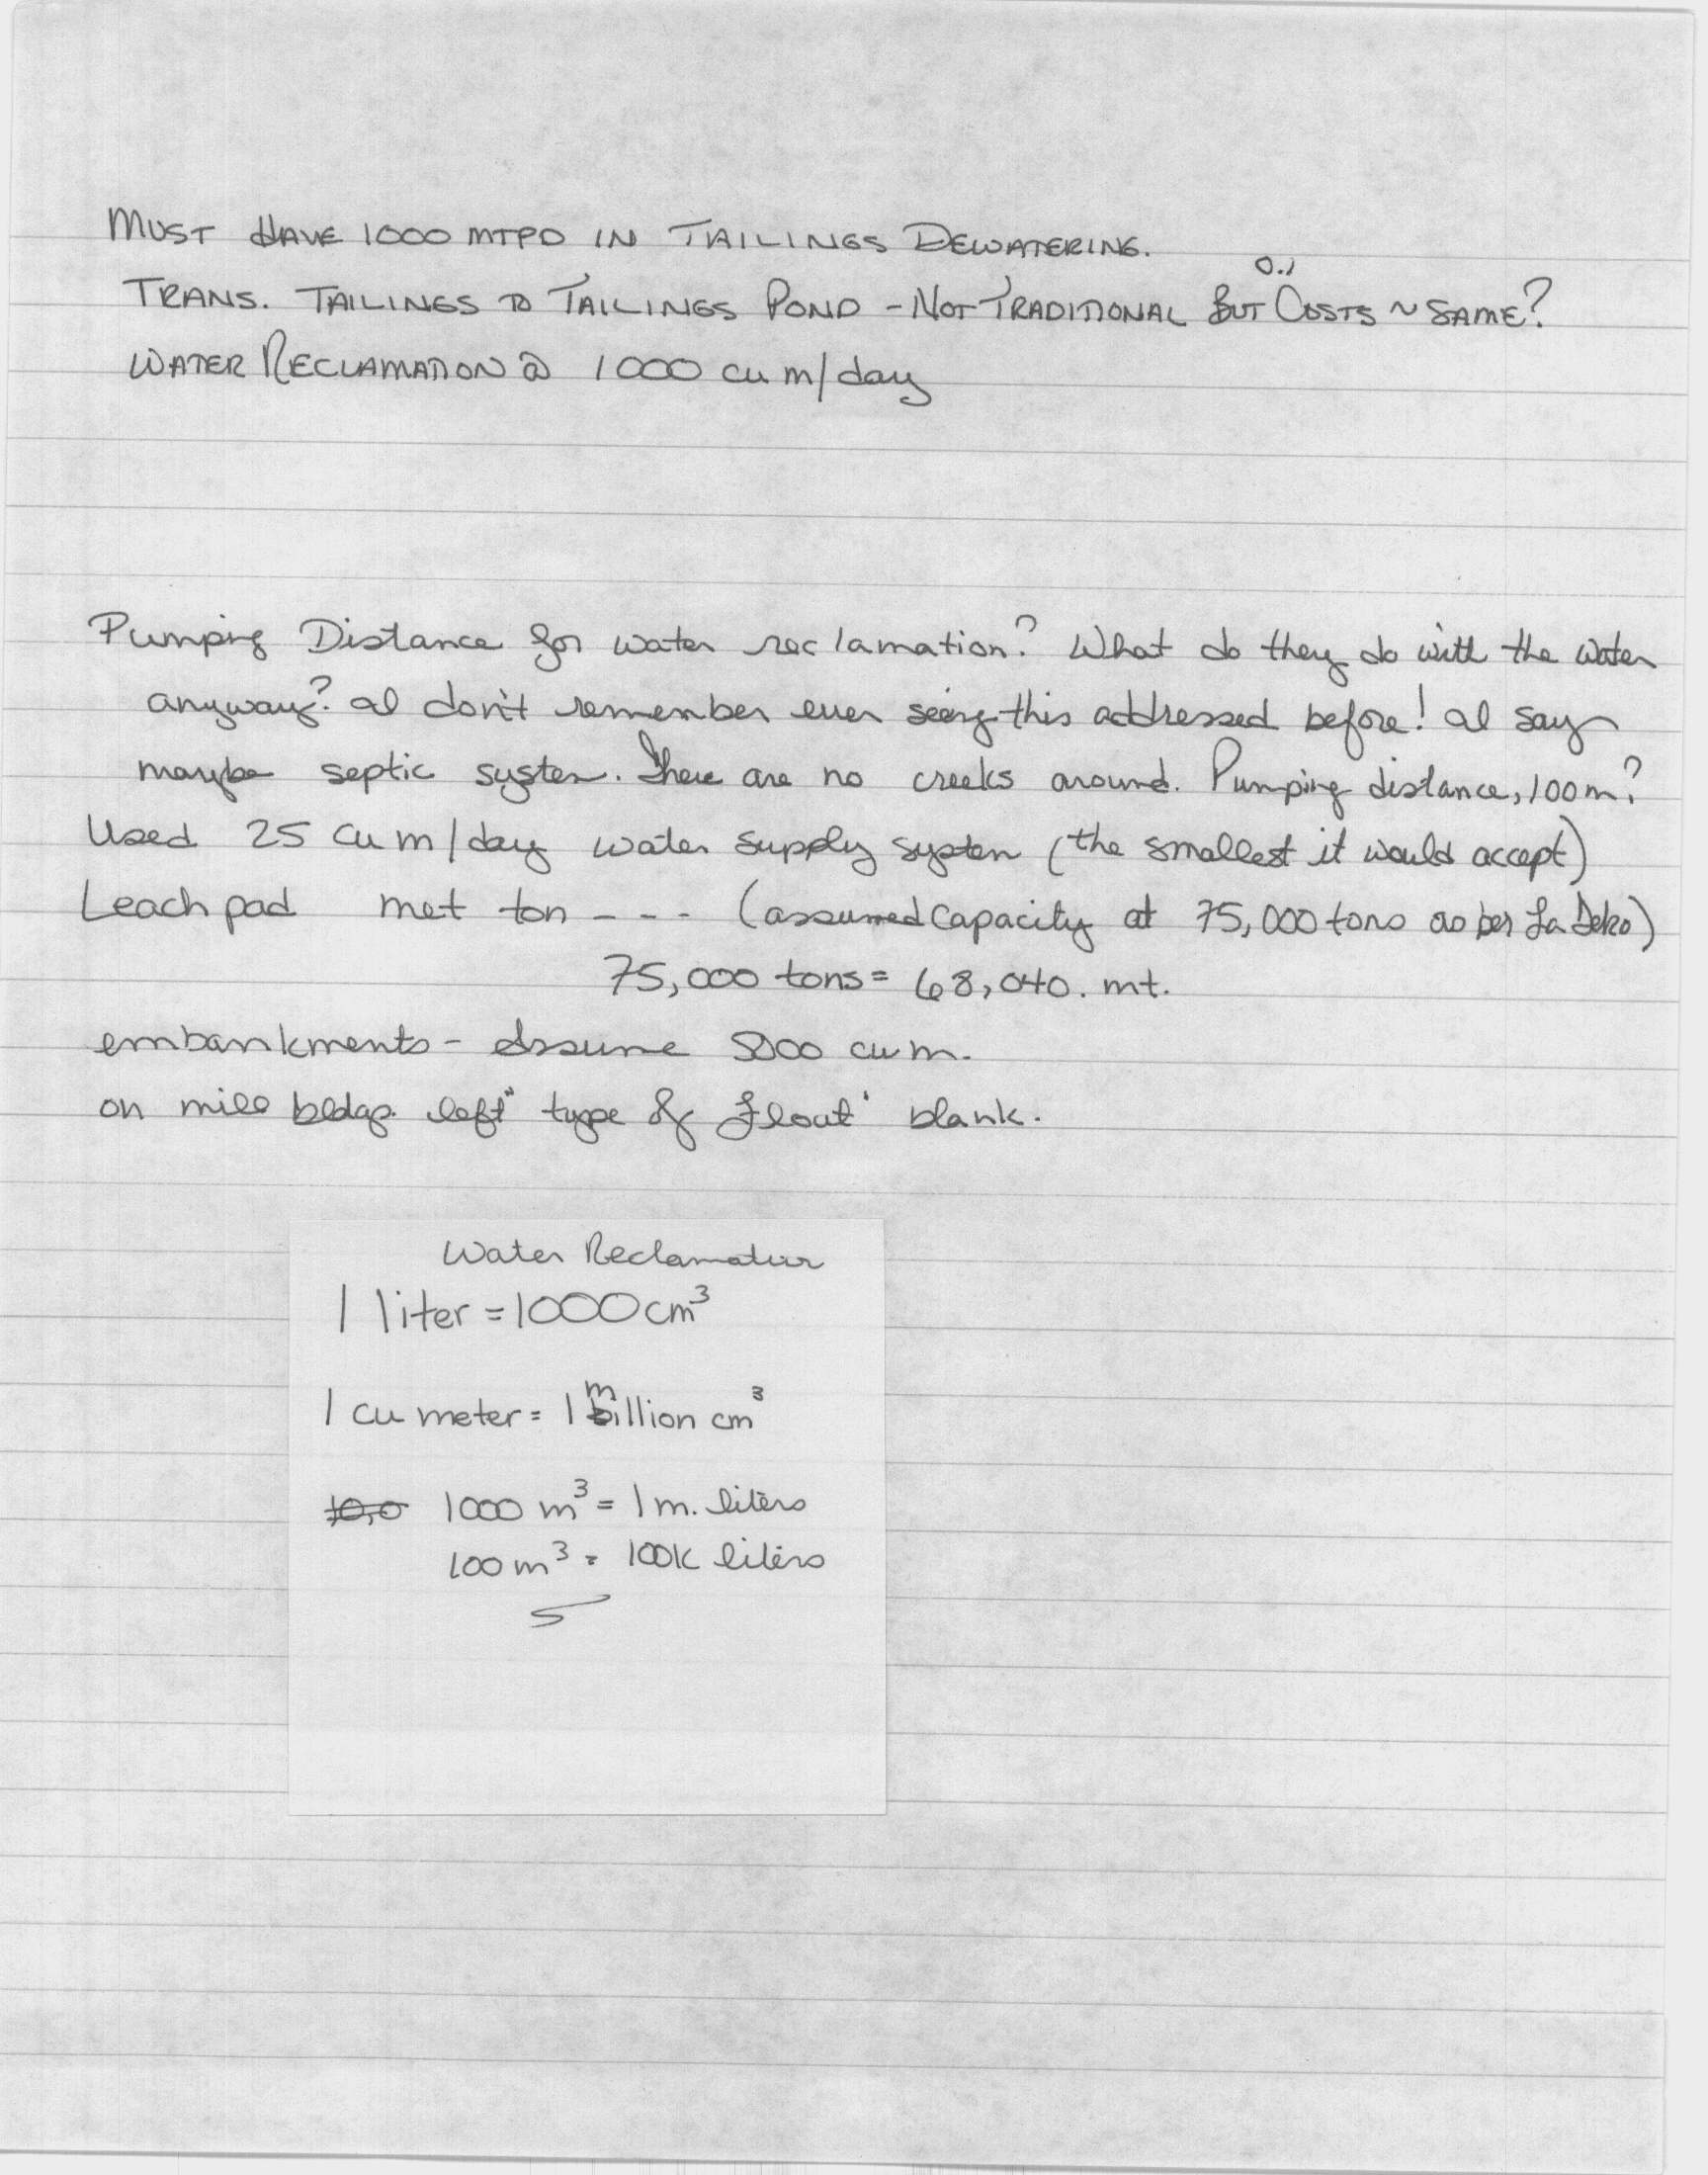 MUST HAVE 1000 MTPD IN TAILINGS DEWATERING.
0.1
TRANS. TAILINGS TO TAILINGS POND - NOT TRADITIONAL BUT COSTS ~ SAME?
WATER RECLAMATION @ 1000 cu m/day
Pumping Distance for water reclamation? What do they do with the water
anyway? I don't remember ever seeing this addressed before! I say
maybe septic system. There are no creeks around. Pumping distance, 100m?
Used 25 cu m/day water supply system (the smallest it would accept)
Leach pad met ton - - - (assumed capacity at 75,000 tons as per La
75,000 tons = 68,040. mt.
embankments - Assume 5000 cu m.
on mill bldg. left "type of float" blank.
Water Reclamation
1 liter = 1000 cm³
1 cu meter = 1 million cm³
10,0 1000 m³ = 1 m. liters
100 m³ = 100K liters
5